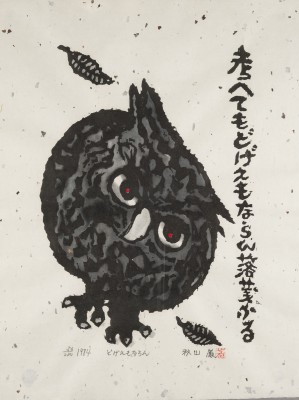 考へてもどげえもならん落葉ふる
1974 どげえもならん 秋山巌